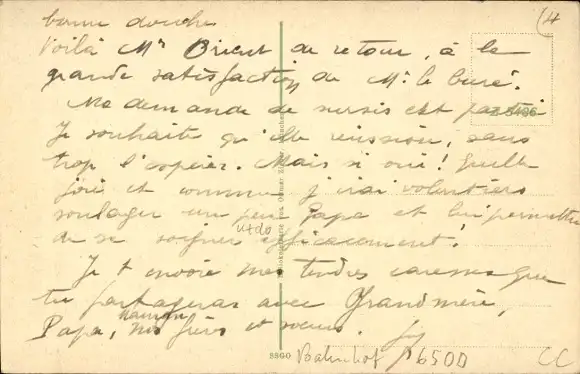 (4
bonne douche
Voilà Mr Brient de retour, à la
grande satisfaction de Mr le Curé.
Ma demande de sursis est partie
Je souhaite qu'elle réussisse, sans
trop l'espérer. Mais si oui! Quelle
joie et comme j'irai volontiers
soulager un peu Papa et lui permettre
de se soigner efficacement!
Je t'envoie mes tendres caresses que
tu partageras avec Grandmère,
Papa, maman, nos frères et sœurs.
8890 Bahnhof 1650D CC